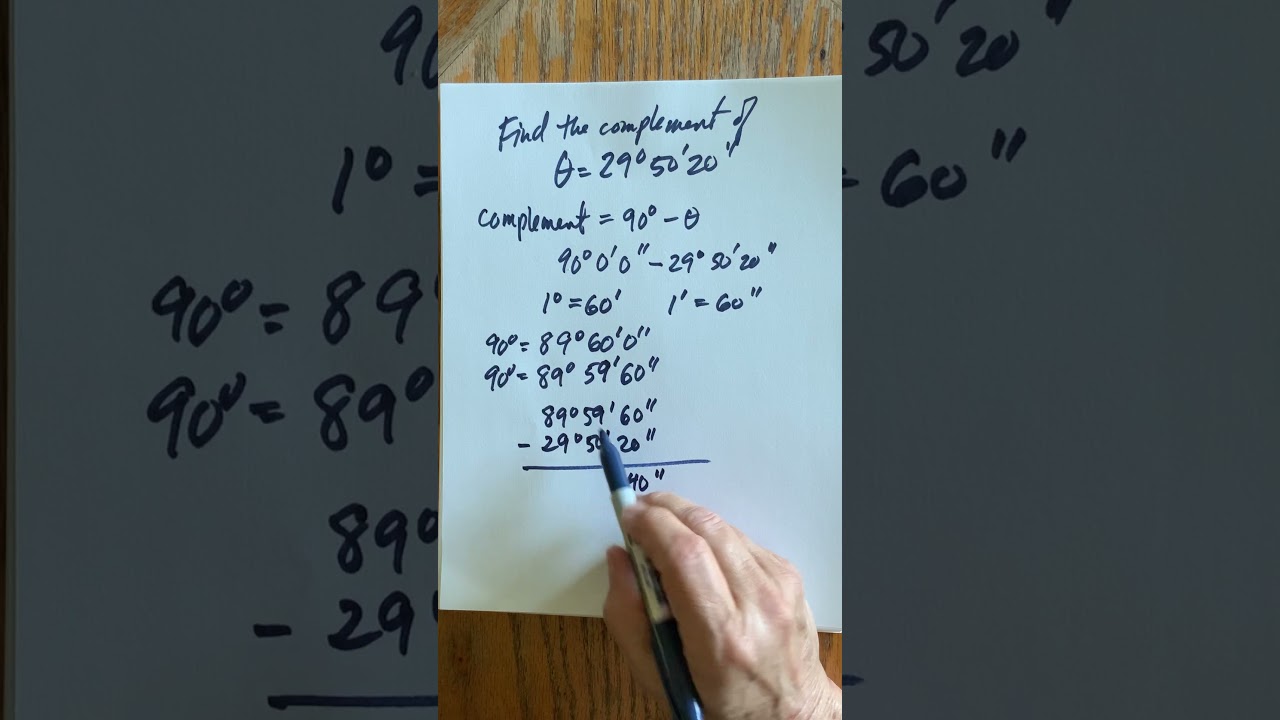 Find the complement of
θ = 29° 50' 20"
complement = 90° - θ
90° 0' 0" - 29° 50' 20"
1° = 60' 1' = 60"
90° = 89° 60' 0"
90° = 89° 59' 60"
89° 59' 60"
- 29° 50' 20"
40"